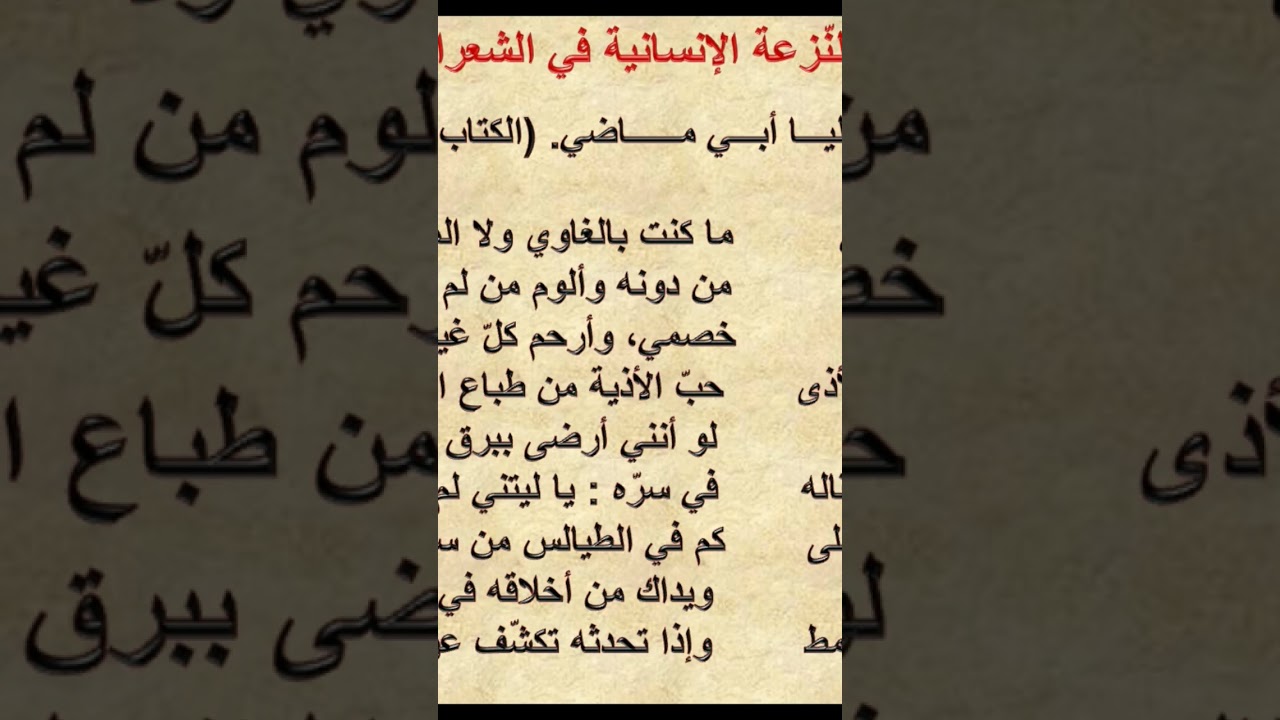 لنّزعة الإنسانية في الشعرا
ليـا أبـي مـــاضي. (الكتاب
ما كنت بالغاوي ولا
من دونه وألوم من لم
خصمي، وأرحم كلّ غي
أذى حبّ الأذية من طباع ا
لو أنني أرضى ببرق
اله في سرّه : يا ليتني لم
لى كم في الطيالس من س
ويداك من أخلاقه في
مط وإذا تحدثه تكشّف ع